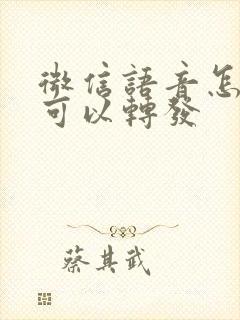 微信語音怎
可以轉發
蔡其武